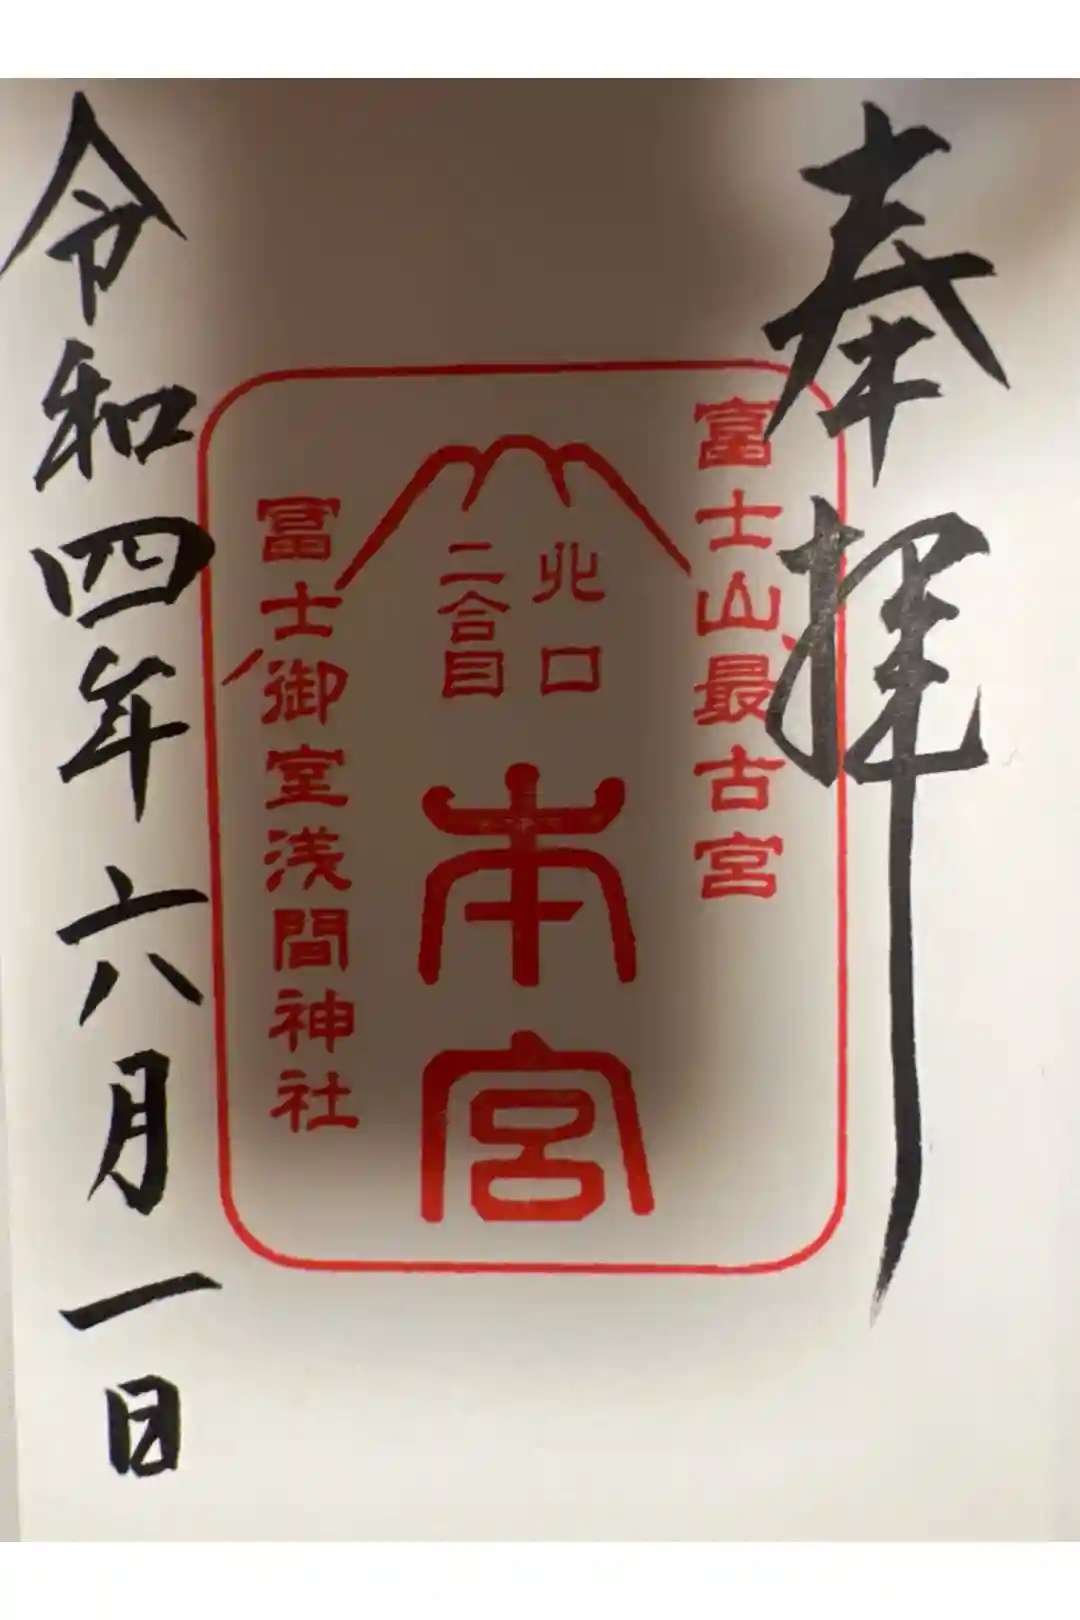 奉拝
富士山最古宮
北口
二合目
本宮
冨士御室浅間神社
令和四年六月一日